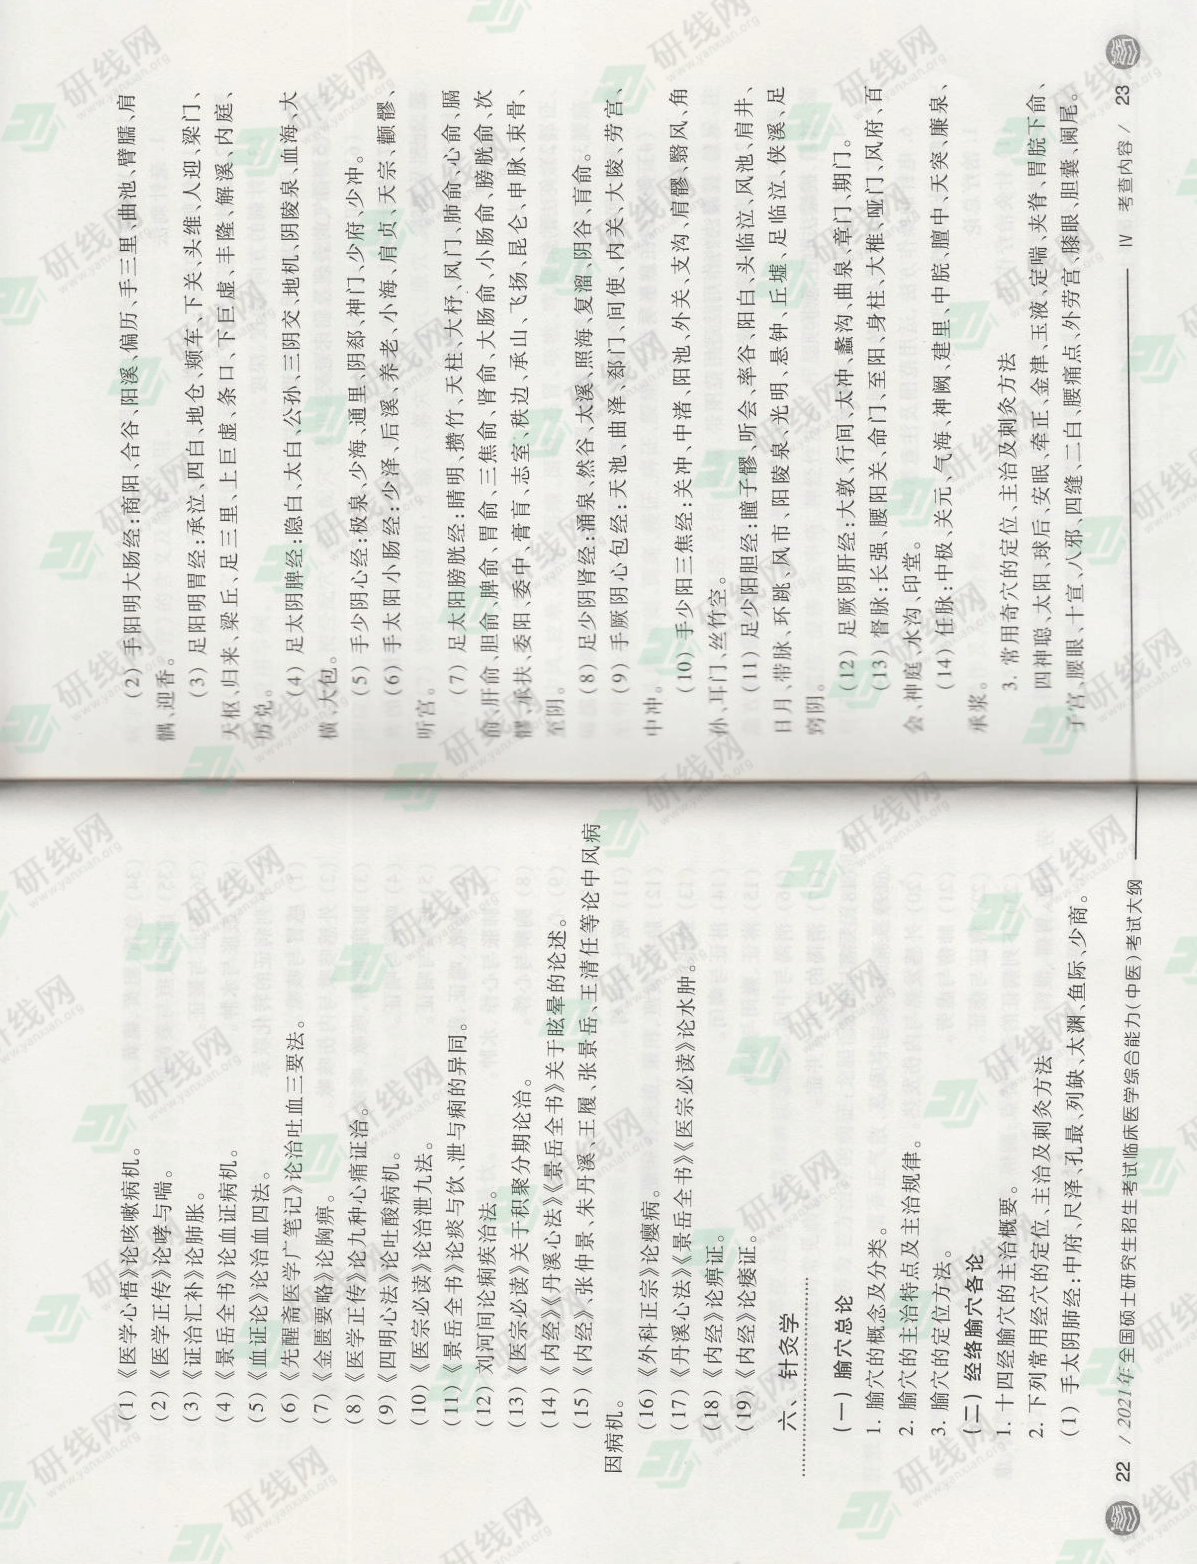 (1)《医学心悟》论咳嗽病机。
(2)《医学正传》论哮与喘。
(3)《证治汇补》论肺胀。
(4)《景岳全书》论血证病机。
(5)《血证论》论治血四法。
(6)《先醒斋医学广笔记》论治吐血三要法。
(7)《金匮要略》论胸痹。
(8)《医学正传》论九种心痛证治。
(9)《四明心法》论吐酸病机。
(10)《医宗必读》论治泄九法。
(11)《景岳全书》论痰与饮、泄与痢的异同。
(12) 刘河间论痢疾治法。
(13)《医宗必读》关于积聚分期论治。
(14)《内经》《丹溪心法》《景岳全书》关于眩晕的论述。
(15)《内经》、张仲景、朱丹溪、王履、张景岳、王清任等论中风病
因病机。
(16)《外科正宗》论瘿病。
(17)《丹溪心法》《景岳全书》《医宗必读》论水肿。
(18)《内经》论痹证。
(19)《内经》论痿证。
六、针灸学
(一) 腧穴总论
1. 腧穴的概念及分类。
2. 腧穴的主治特点及主治规律。
3. 腧穴的定位方法。
(二) 经络腧穴各论
1. 十四经腧穴的主治概要。
2. 下列常用经穴的定位、主治及刺灸方法
(1) 手太阴肺经:中府、尺泽、孔最、列缺、太渊、鱼际、少商。
22 / 2021年全国硕士研究生招生考试临床医学综合能力(中医)考试大纲
(2) 手阳明大肠经:商阳、合谷、阳溪、偏历、手三里、曲池、臂臑、肩
髃、迎香。
(3) 足阳明胃经:承泣、四白、地仓、颊车、下关、头维、人迎、梁门、
天枢、归来、梁丘、足三里、上巨虚、条口、下巨虚、丰隆、解溪、内庭、
厉兑。
(4) 足太阴脾经:隐白、太白、公孙、三阴交、地机、阴陵泉、血海、大
横、大包。
(5) 手少阴心经:极泉、少海、通里、阴郄、神门、少府、少冲。
(6) 手太阳小肠经:少泽、后溪、养老、小海、肩贞、天宗、颧髎、
听宫。
(7) 足太阳膀胱经:睛明、攒竹、天柱、大杼、风门、肺俞、心俞、膈
俞、肝俞、胆俞、脾俞、胃俞、三焦俞、肾俞、大肠俞、小肠俞、膀胱俞、次
髎、承扶、委阳、委中、膏肓、志室、秩边、承山、飞扬、昆仑、申脉、束骨、
至阴。
(8) 足少阴肾经:涌泉、然谷、太溪、照海、复溜、阴谷、肓俞。
(9) 手厥阴心包经:天池、曲泽、郄门、间使、内关、大陵、劳宫、
中冲。
(10) 手少阳三焦经:关冲、中渚、阳池、外关、支沟、肩髎、翳风、角
孙、耳门、丝竹空。
(11) 足少阳胆经:瞳子髎、听会、率谷、阳白、头临泣、风池、肩井、
日月、带脉、环跳、风市、阳陵泉、光明、悬钟、丘墟、足临泣、侠溪、足
窍阴。
(12) 足厥阴肝经:大敦、行间、太冲、蠡沟、曲泉、章门、期门。
(13) 督脉:长强、腰阳关、命门、至阳、身柱、大椎、哑门、风府、百
会、神庭、水沟、印堂。
(14) 任脉:中极、关元、气海、神阙、建里、中脘、膻中、天突、廉泉、
承浆。
3. 常用奇穴的定位、主治及刺灸方法
四神聪、太阳、球后、安眠、牵正、金津、玉液、定喘、夹脊、胃脘下俞、
子宫、腰眼、十宣、八邪、四缝、二白、腰痛点、外劳宫、膝眼、胆囊、阑尾。
Ⅳ 考查内容 / 23
研线网
www.yanxian.org